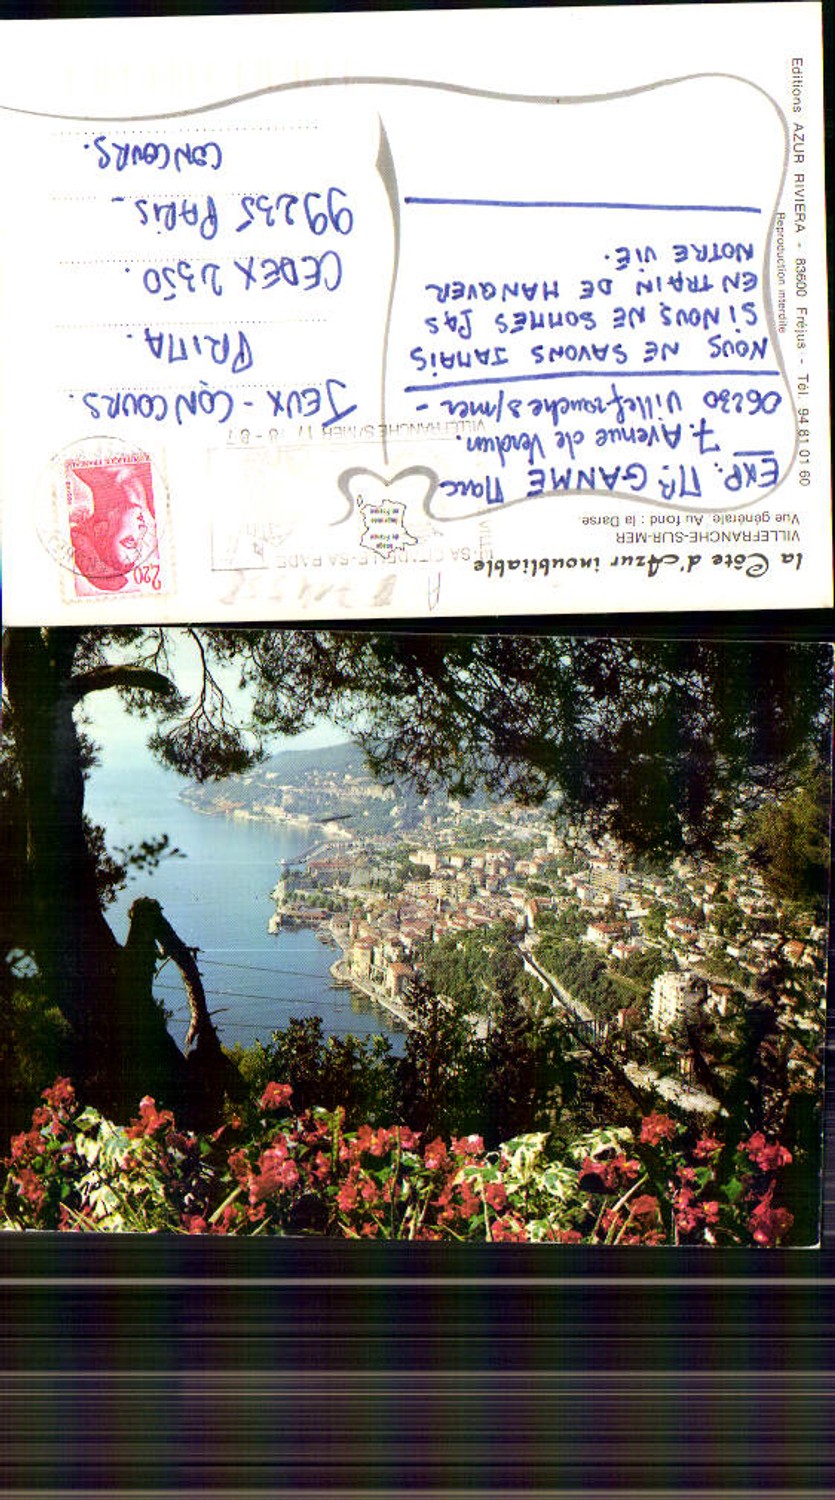 la Côte d'Azur inoubliable
VILLEFRANCHE-SUR-MER
Vue générale. Au fond : la Darse
EXP. Mr. GANME Marc
7. Avenue de Verdun.
06230 Villefranche s/mer -
NOUS NE SAVONS JAMAIS
SI NOUS NE SOMMES PAS
EN TRAIN DE MANQUER
NOTRE VIE.
Image
de France
Imprimée
en France
SA CITADELLE SA RADE
VILLEFRANCHE S/MER
2,20
REPUBLIQUE FRANÇAISE
JEUX - CONCOURS.
PRIMA.
CEDEX 2350.
99235 PARIS -
CONCOURS.
Editions AZUR RIVIERA - 83600 Fréjus - Tél. 94.81.01.60
Reproduction interdite